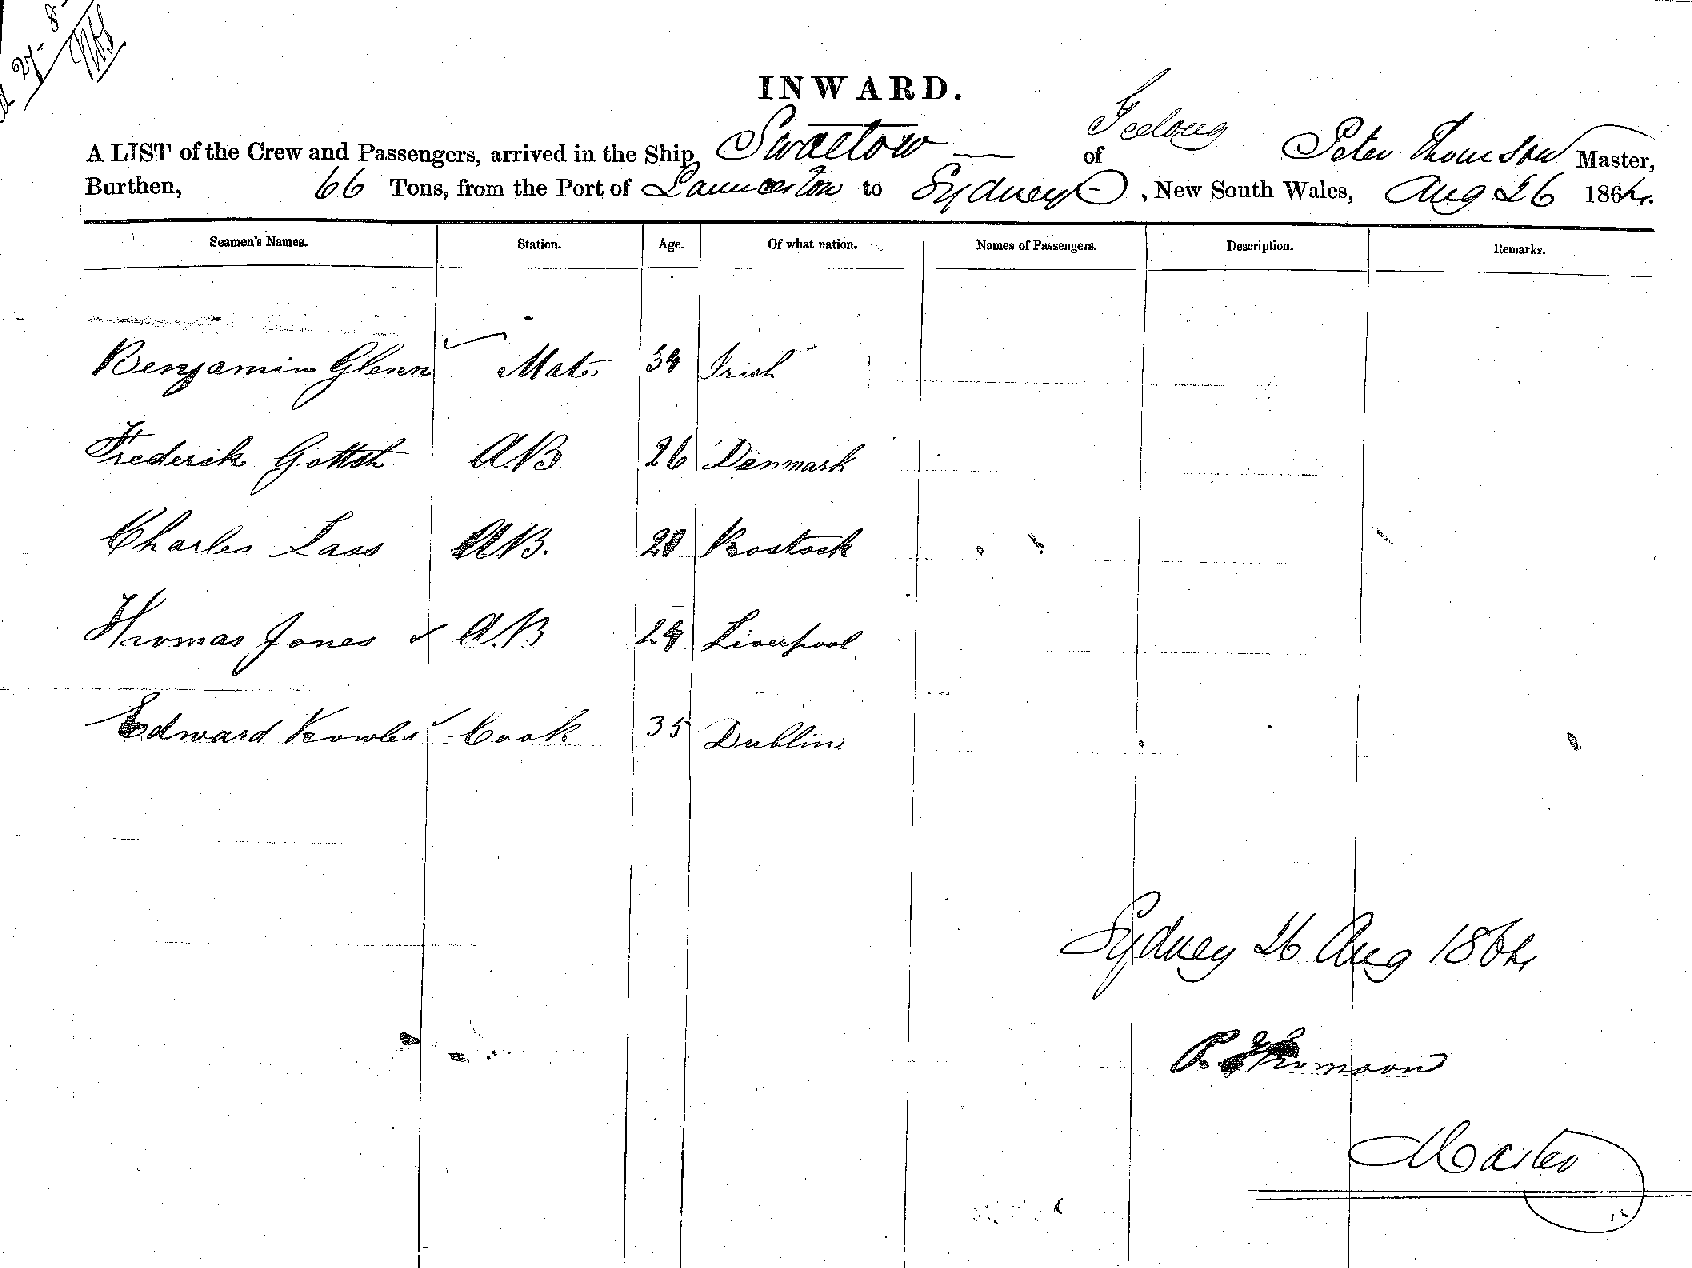 27-8
INWARD.
A LIST of the Crew and Passengers, arrived in the Ship Swallow of Geelong Peter Thomson Master,
Burthen, 66 Tons, from the Port of Launceston to Sydney, New South Wales, Aug 26 1864.
Seamen's Names. Station. Age. Of what nation. Names of Passengers. Description. Remarks.
Benjamin Glenn Mate Irish
Frederick Gottsh A.B 26 Denmark
Charles Lass A.B. Rostock
Thomas Jones A.B Liverpool
Edward Cook 35 Dublin
Sydney 26 Aug 1864
P. Thomson
Master